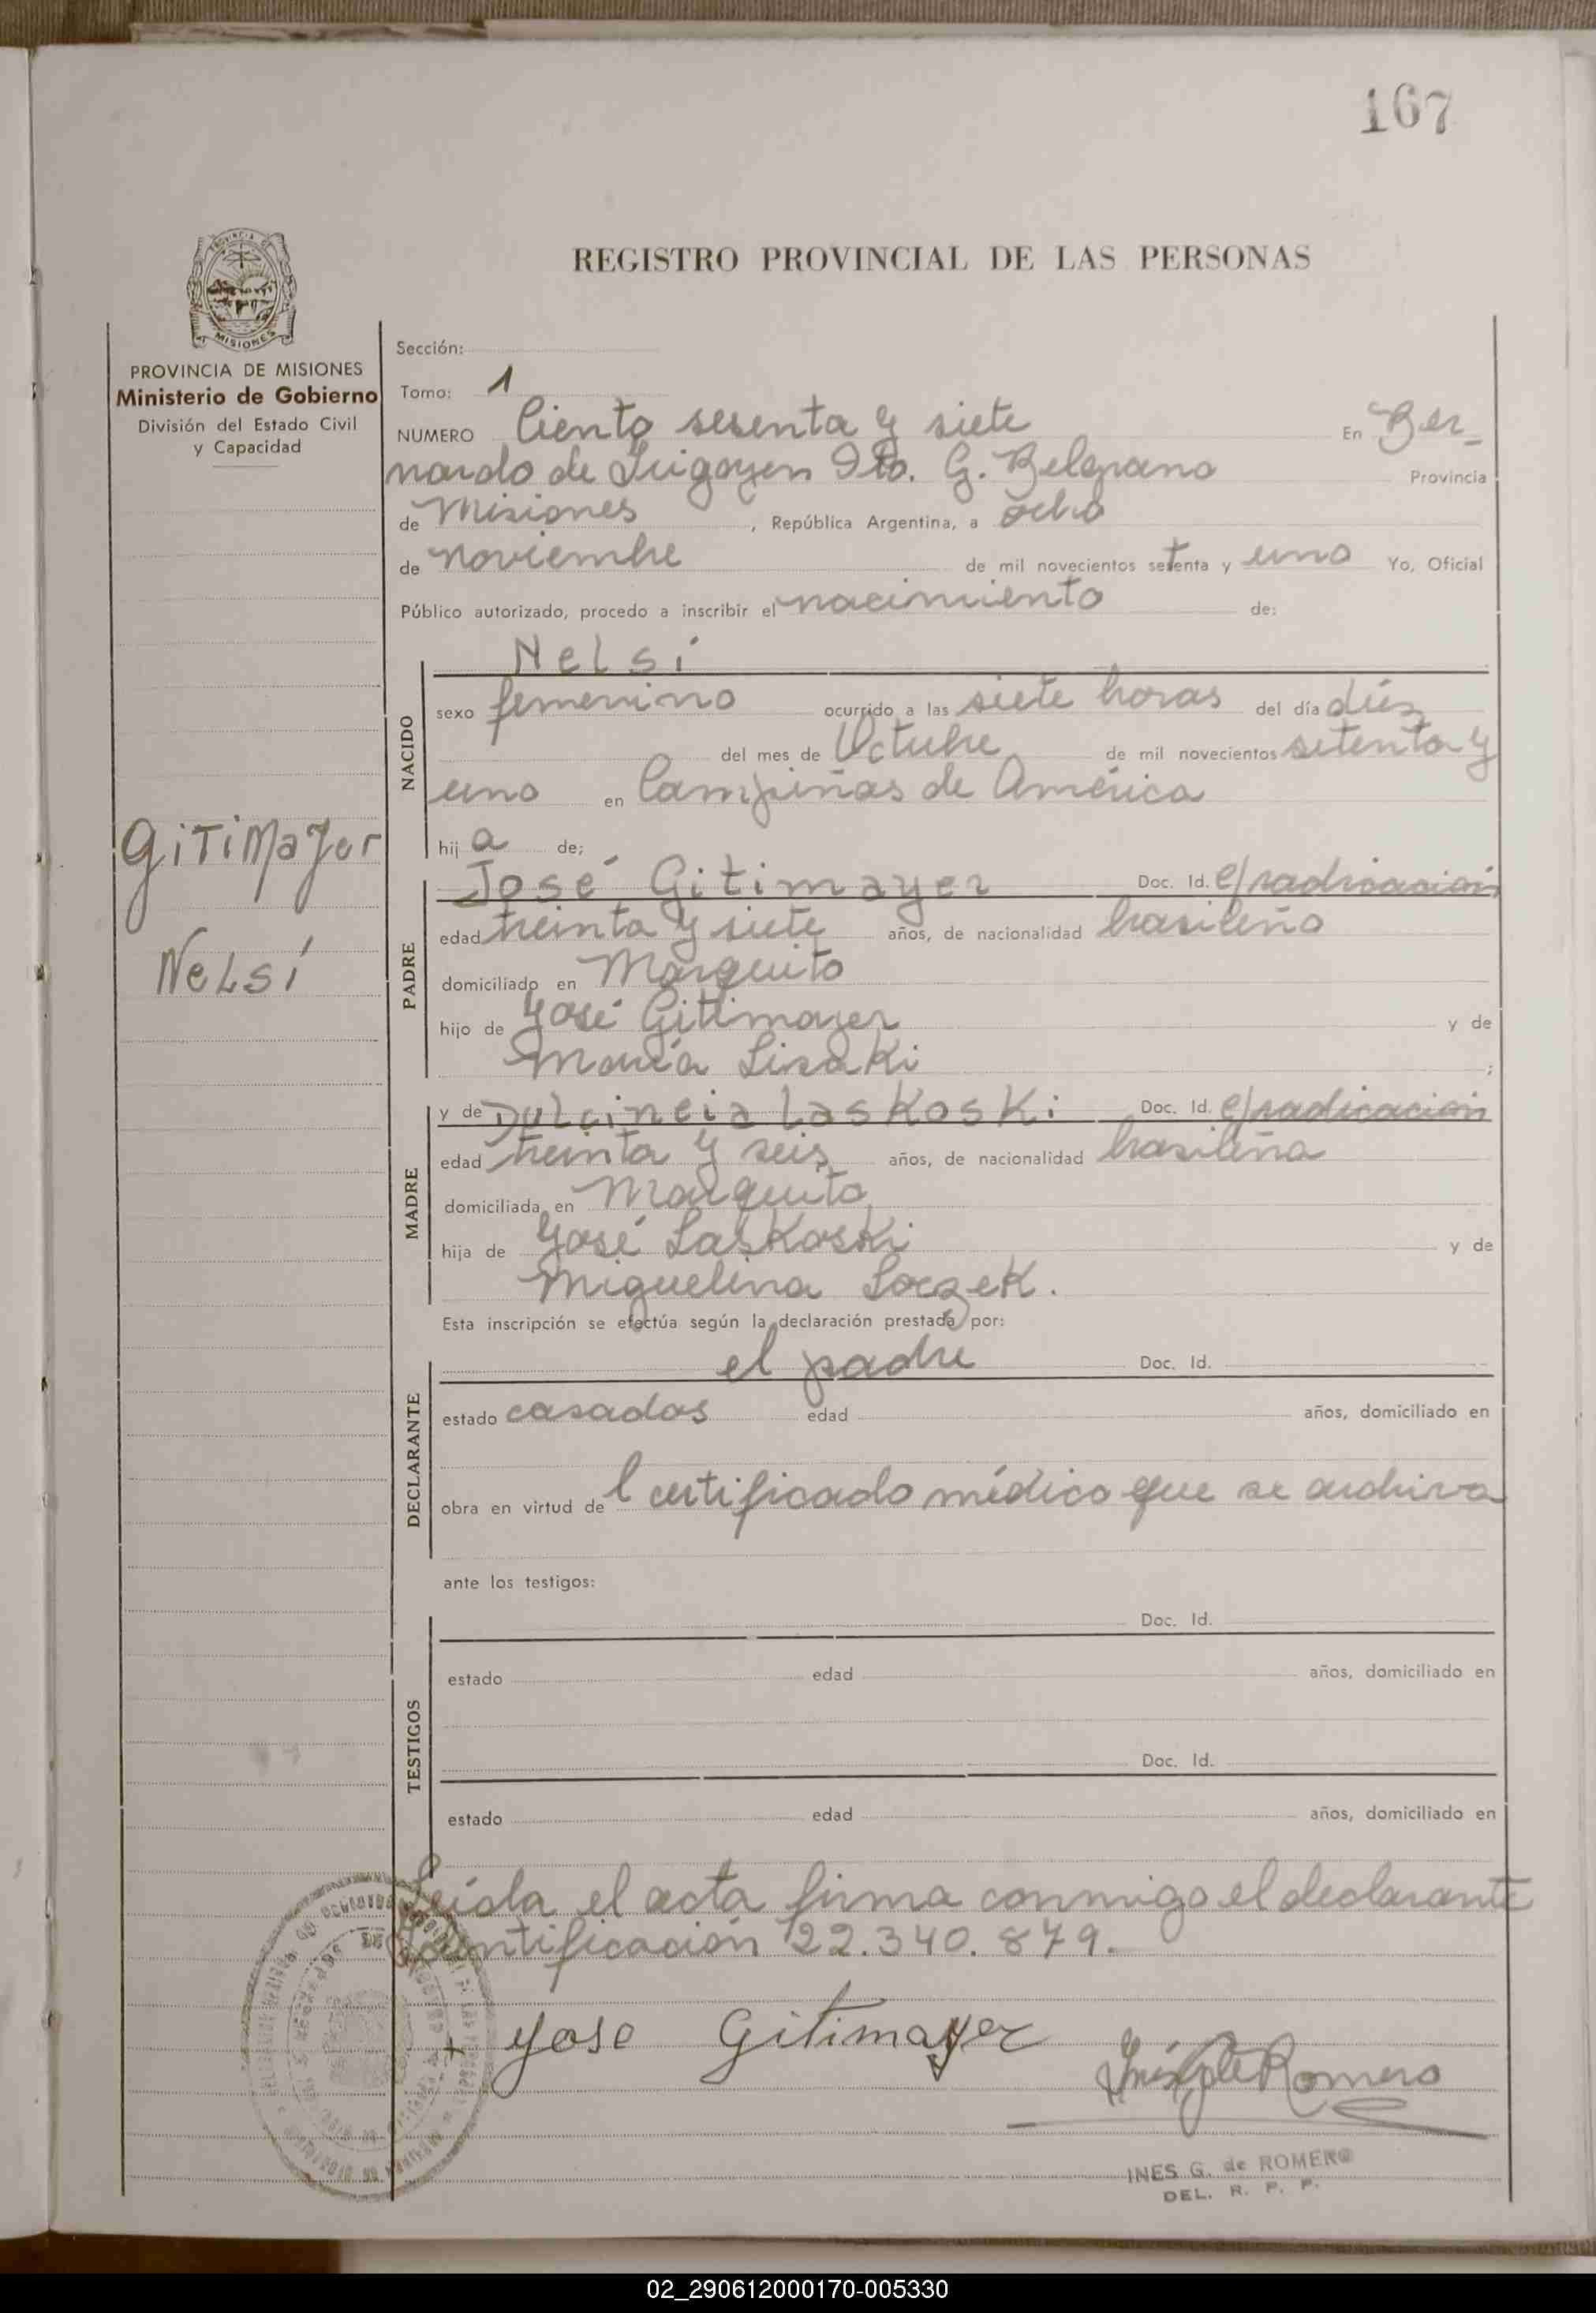 167
REGISTRO PROVINCIAL DE LAS PERSONAS
MISIONES
PROVINCIA DE MISIONES
Ministerio de Gobierno
División del Estado Civil
y Capacidad
Sección:
Tomo: 1
NUMERO Ciento sesenta y siete En Ber-
nardo de Irigoyen Dto. G. Belgrano Provincia
de Misiones, República Argentina, a ocho
de noviembre de mil novecientos setenta y uno Yo, Oficial
Público autorizado, procedo a inscribir el nacimiento de:
NACIDO
Nelsi
sexo femenino ocurrido a las siete horas del día diéz
del mes de Octubre de mil novecientos setenta y
uno en Campiñas de América
hij a de;
GiTiMaYer
NeLsi
PADRE
José Gitimayer Doc. Id. e/radicación
edad treinta y siete años, de nacionalidad brasileño
domiciliado en Marquito
hijo de José Gitimayer y de
María Lisaki ;
MADRE
y de Dulcineia Laskoski Doc. Id. e/radicación
edad treinta y seis años, de nacionalidad brasileña
domiciliada en Marquito
hija de José Laskoski y de
Miguelina Soczek.
Esta inscripción se efectúa según la declaración prestada por:
DECLARANTE
el padre Doc. Id.
estado casados edad años, domiciliado en
obra en virtud de l certificado médico que se archiva
ante los testigos:
TESTIGOS
Doc. Id.
estado edad años, domiciliado en
Doc. Id.
estado edad años, domiciliado en
Leída el acta firma conmigo el declarante
identificación 22.340.879.
x Jose Gitimayer
Inés G de Romero
INES G. de ROMERO
DEL. R. P. P.
02_290612000170-005330